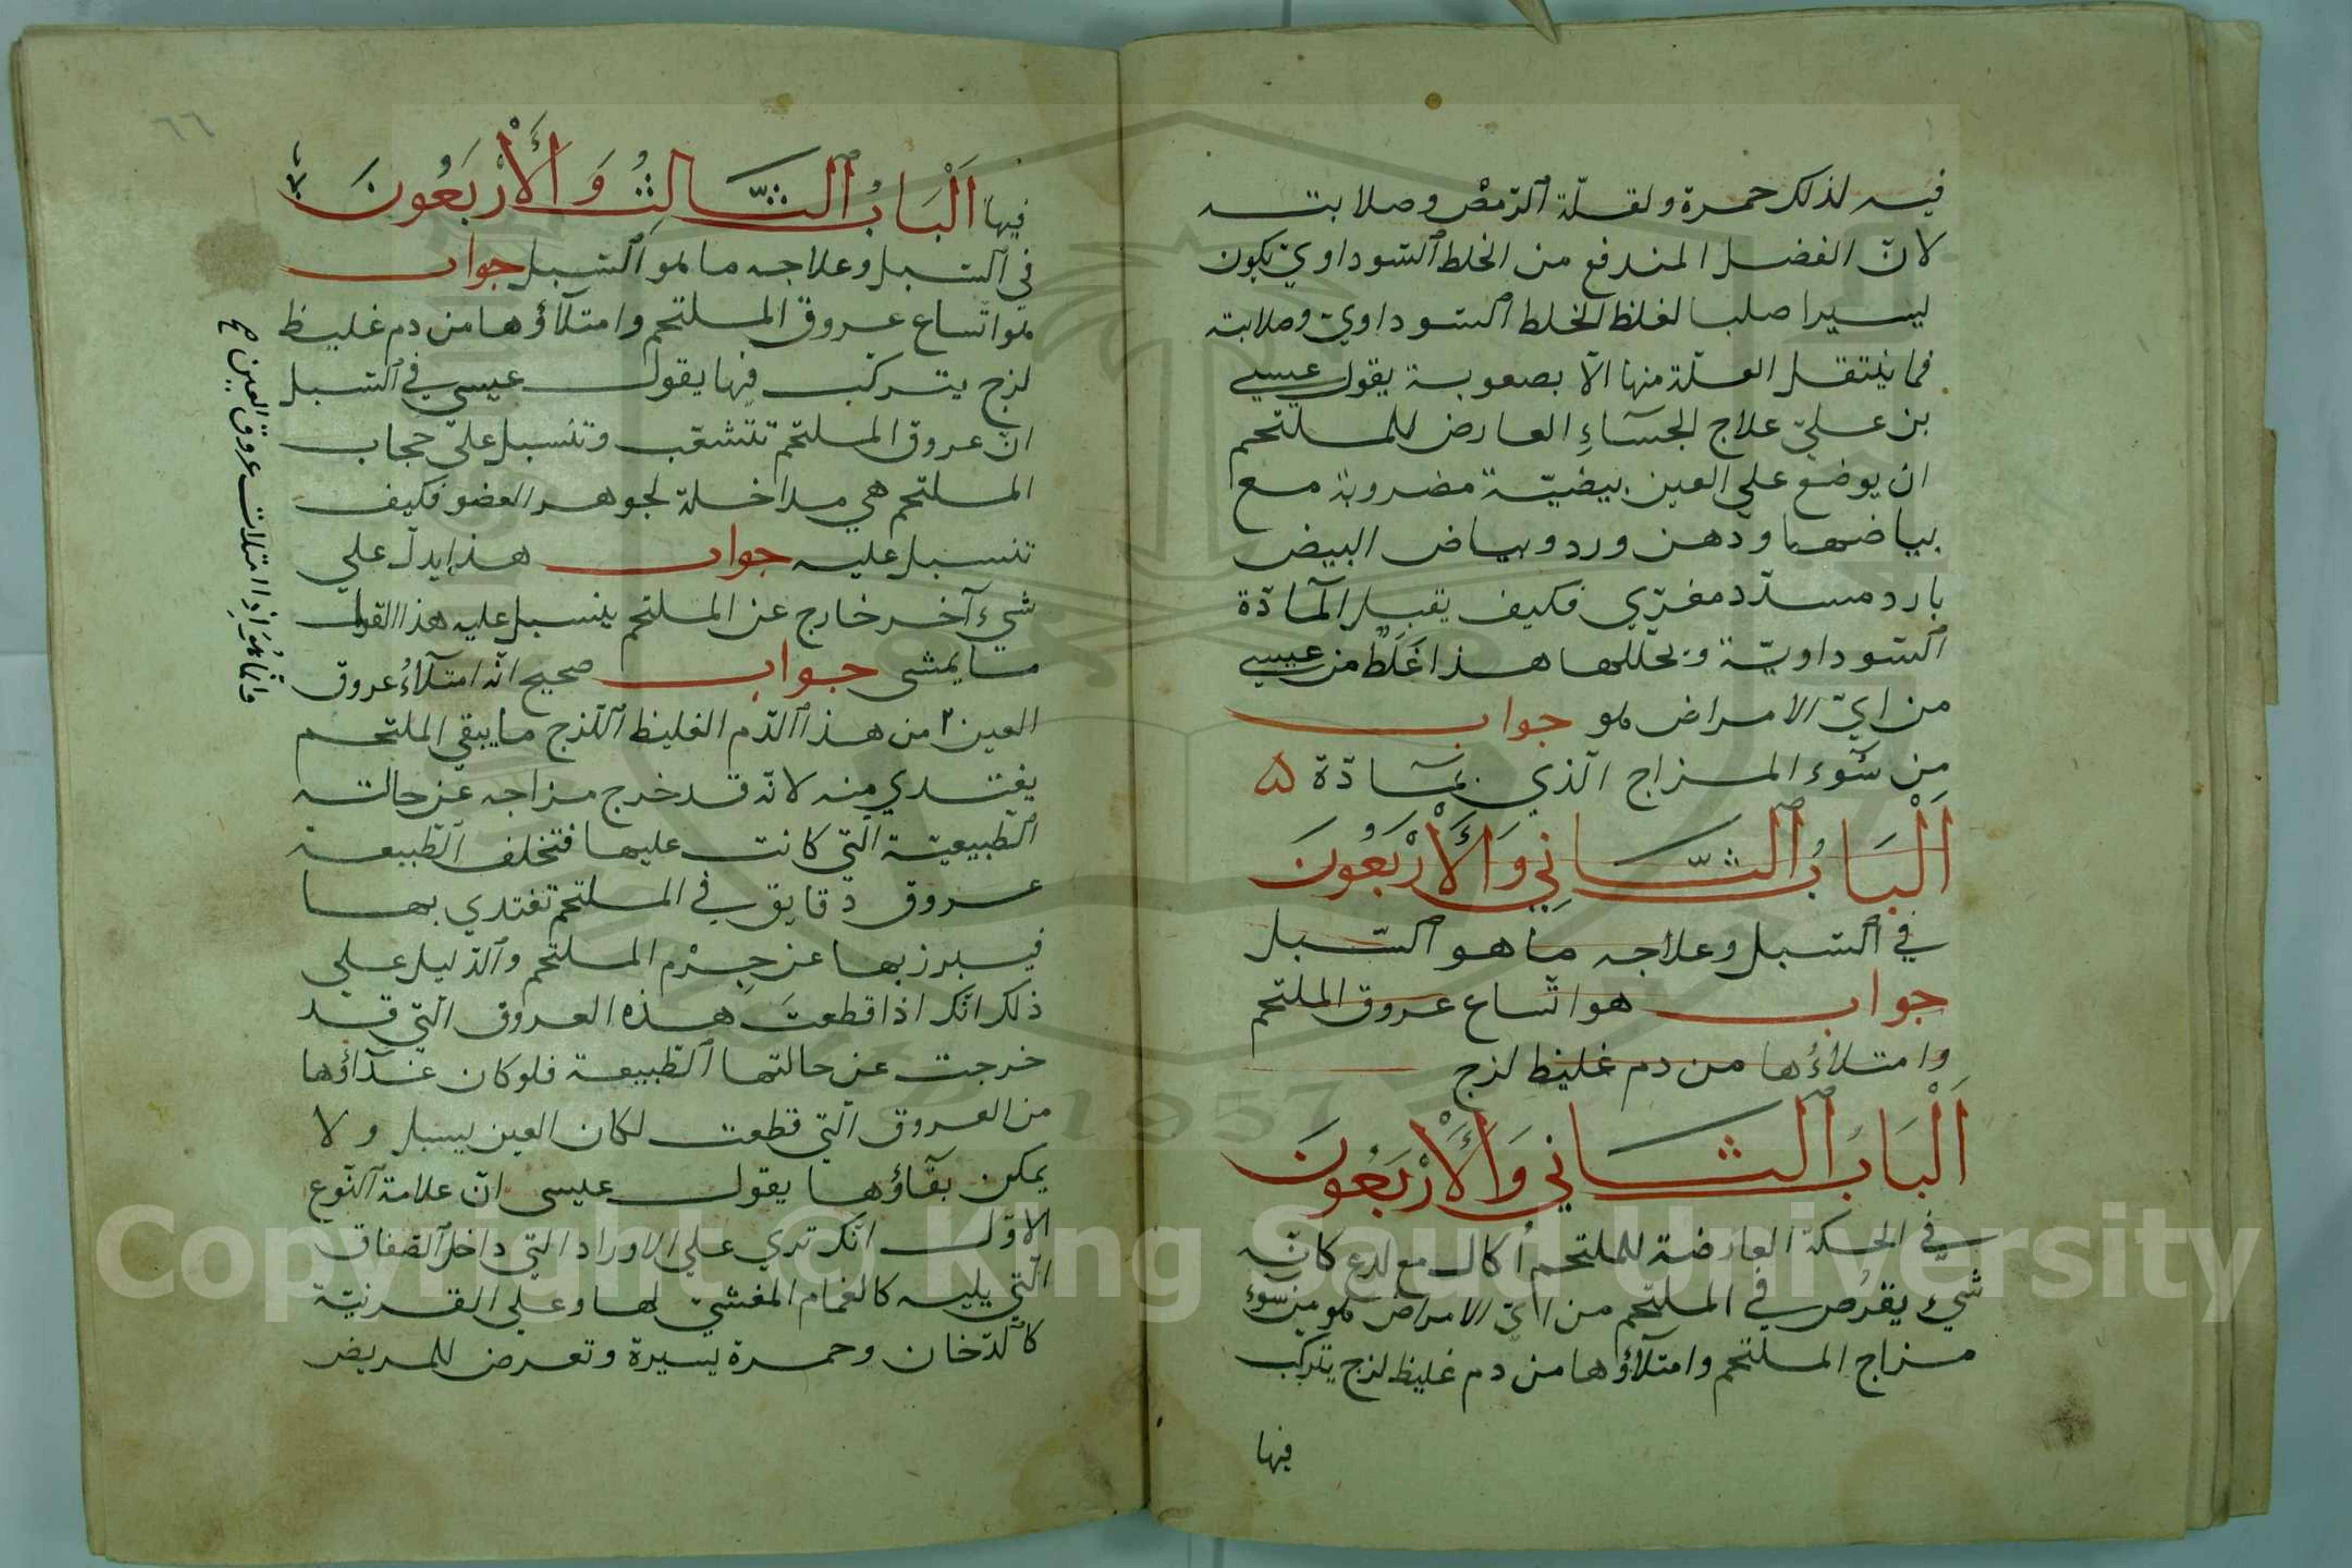 فيه لذلك حمرة ولقلّة الرّمص وصلابته
لانّ الفضل المندفع من الخلط السّوداويّ يكون
يسيرا صلبا لغلظ الخلط السّوداويّ وصلابته
فما ينتقل العلّة منها الّا بصعوبة يقول عيسي
بن عليّ علاج الجسَاءِ العارض للملتحم
ان يوضع علي العين بيضيّة مضروبة مع
بياضها ودهن ورد وبياض البيض
بارد مسدّد مغرّي فكيف يقبل المآدّة
السّوداويّة ويحلّلها هذا غَلَطٌ من عيسي
من ايّ الامراض هو جواب
من سُوء المزاج الّذي بمآدّة ۵
اَلْبَابُ الثَّانِي وَالْأَرْبَعُونَ
في السّبل وعلاجه ما هو السّبل
جواب هو اتّساع عروق الملتحم
وامتلاؤُها من دم غليظ لزج
اَلْبَابُ الثَّانِي وَالْأَرْبَعُونَ
في الحكّة العارضة للملتحم أُكال مع لدع كانّه
شيء يقرُص في الملتحم من ايّ الامراض هو من سوء
مزاج الملتحم وامتلآؤها من دم غليظ لزج يتركّب
فيها
٦٦
فيها اَلْبَابُ الثَّالِثُ وَالْأَرْبَعُونَ
في السّبل وعلاجه ما هو السّبل جواب
هو اتّساع عروق الملتحم وامتلآؤها من دم غليظ
لزج يتركّب فيها يقول عيسي في السّبل
انّ عروق الملتحم تتشعّب وتنسبل عليّ حجاب
الملتحم هي مداخلة لجوهر العضو فكيف
تنسبل عليه جواب هذا يدلّ علي
شيء آخر خارج عن الملتحم ينسبل عليه هذا القول
ما يمشى جواب صحيح انّه امتلآءُ عروق
العين ٢ من هذا الدّم الغليظ اللّزج ما يبقي الملتحم
يغتدي منه لانّه قد خرج مزاجه عن حالته
الطّبيعيّة الّتي كانت عليها فتخلف الطّبيعة
عروق دقايق في الملتحم تغتدي بها
فيبرز بها عن جِرْم الملتحم والدّليل علي
ذلك انّك اذا قطعتَ هذه العروق الّتي قد
خرجت عن حالتها الطّبيعة فلو كان غذآؤها
من العروق الّتي قطعت لكان العين يسبل ولا
يمكن بقآؤها يقول عيسى انّ علامة النّوع
الاوّل انّك تري علي الاوراد التي داخل الصّفاق
الّتي يليه كالغمام المغشيّ لها وعلي القرنيّة
كالدّخان وحمرة يسيرة وتعرض للمريض
وانّما هُوَ اذا امتلات عروق العين صح
Copyright © King Saud University
1957